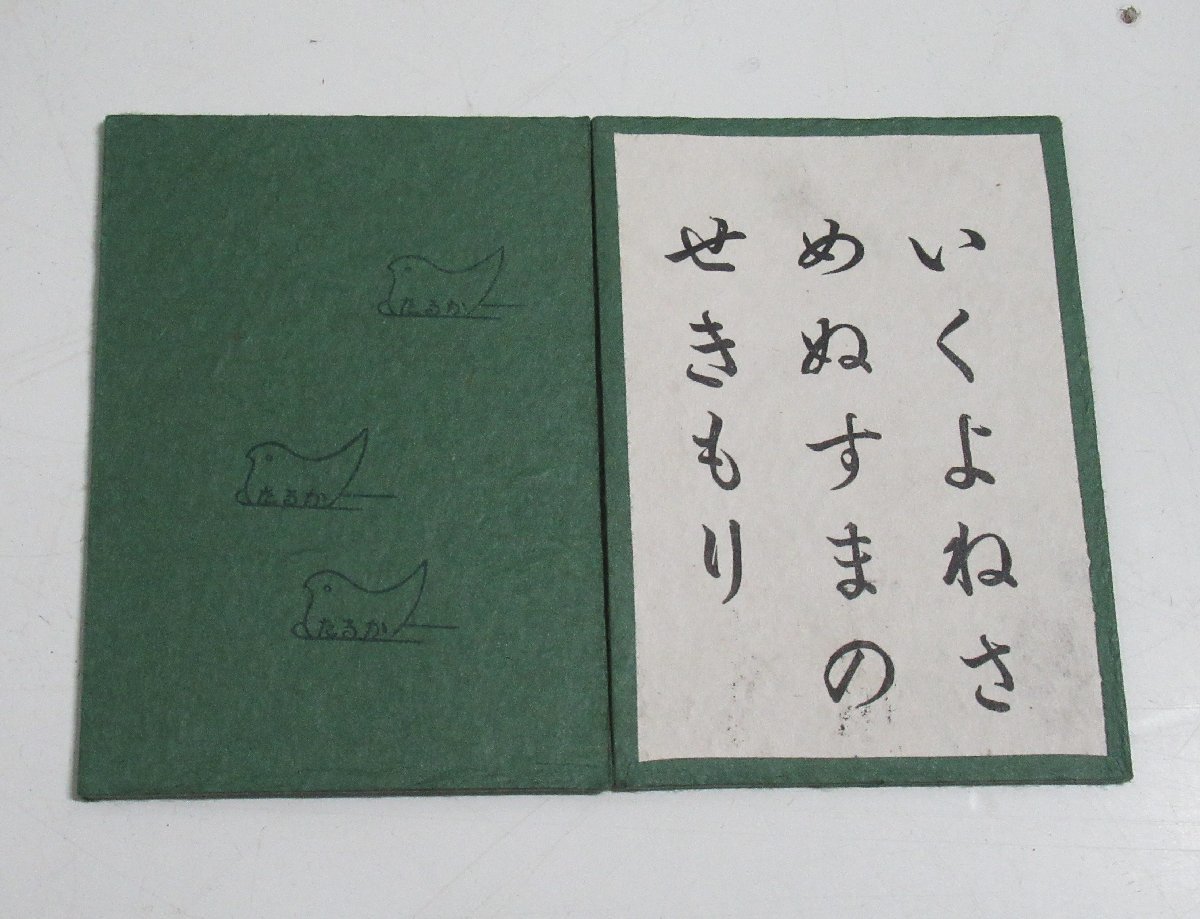 いくよねさ
めぬすまの
せきもり
たるか
たるか
たるか